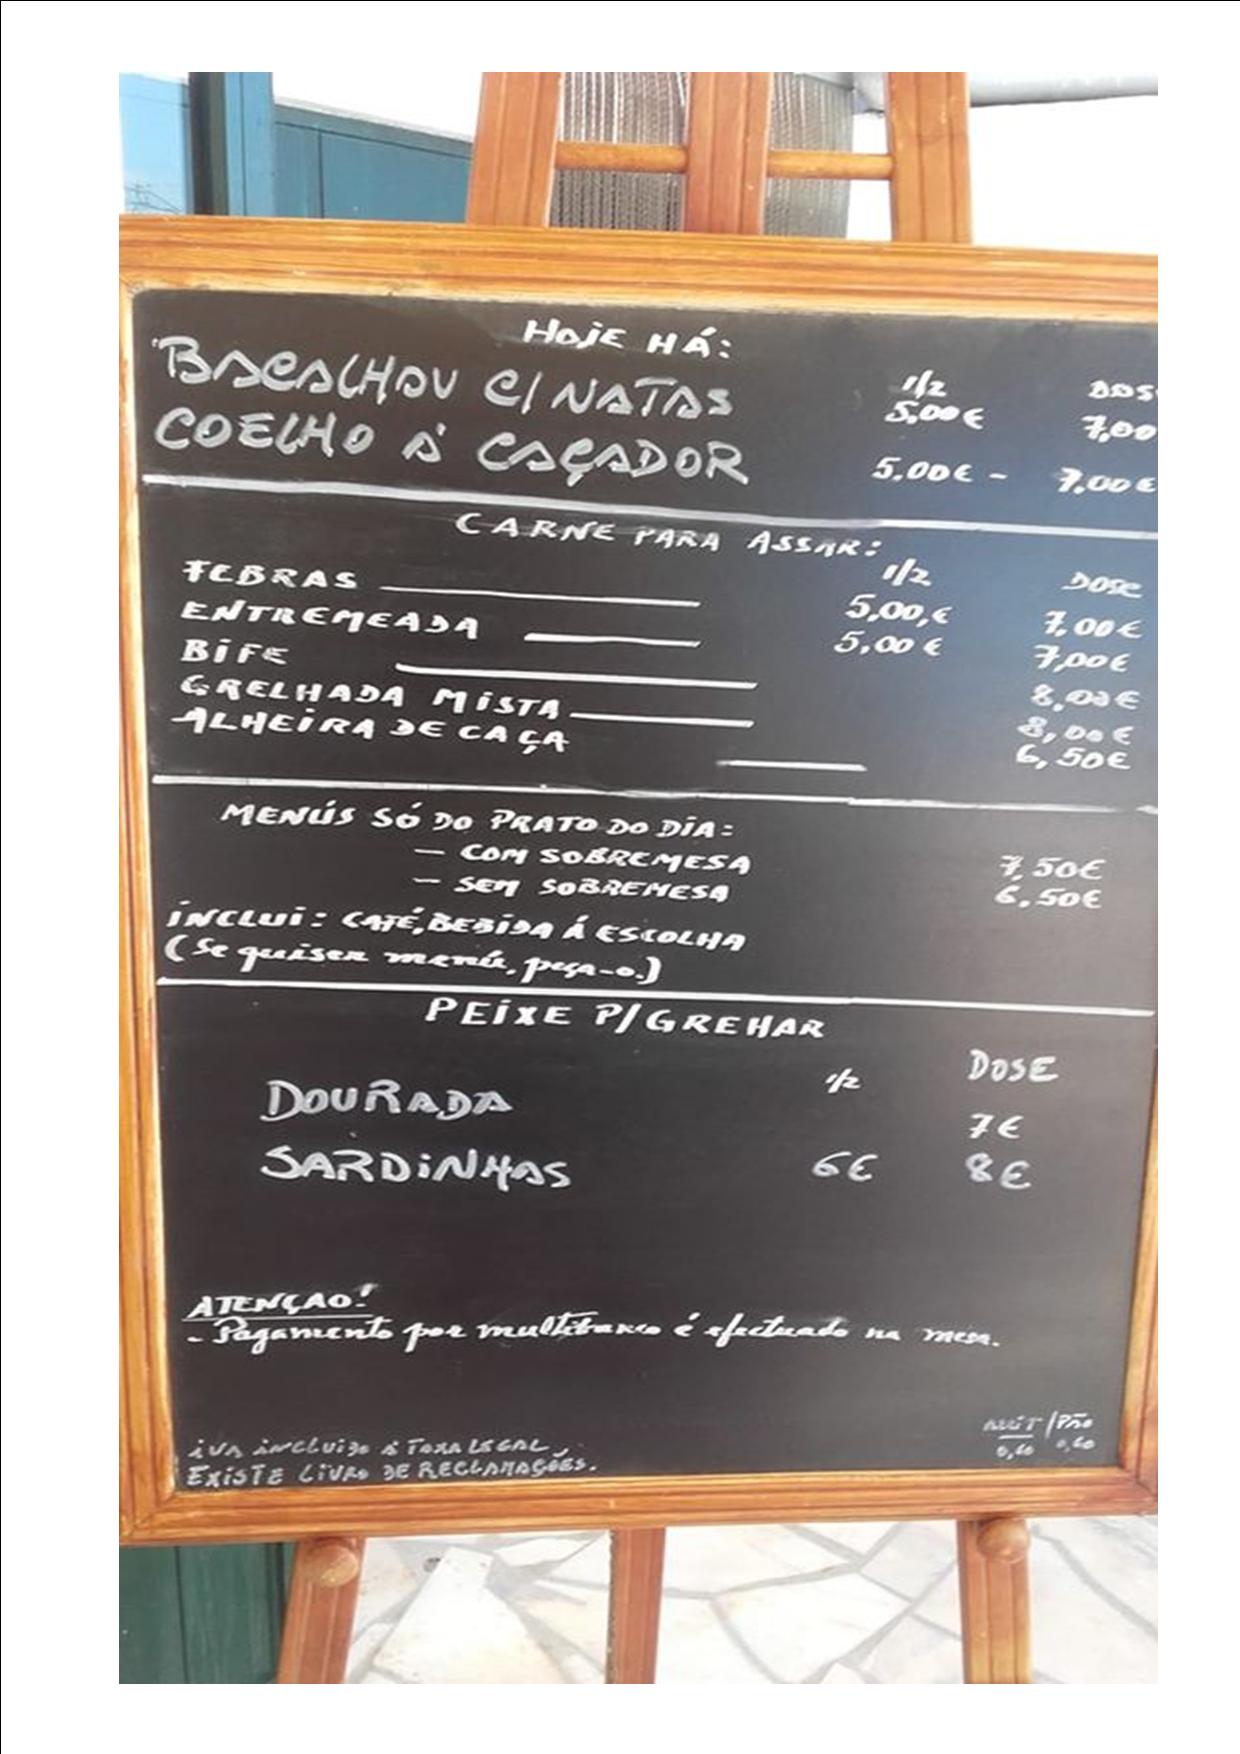 HOJE HÁ:
BACALHAU C/ NATAS 1/2 DOS
5,00€ 7,00
COELHO Á CAÇADOR 5.00€ - 7.00€
CARNE PARA ASSAR:
1/2 DOSE
FEBRAS 5,00,€ 7,00€
ENTREMEADA 5,00€ 7,00€
BIFE 8,00€
GRELHADA MISTA 8,00€
ALHEIRA DE CAÇA 6,50€
MENÚS SÓ DO PRATO DO DIA:
- COM SOBREMESA 7,50€
- SEM SOBREMESA 6.50€
INCLUI: CAFÉ, BEBIDA Á ESCOLHA
(Se quiser menú, peça-o.)
PEIXE P/GREHAR
1/2 DOSE
DOURADA 7€
SARDINHAS 6€ 8€
ATENÇAO!
- Pagamento por multibanco é efectuado na mesa.
AZEIT / PÃO
0,60 0,60
IVA INCLUIDO Á TAXA LEGAL,
EXISTE LIVRO DE RECLAMAÇÕES.